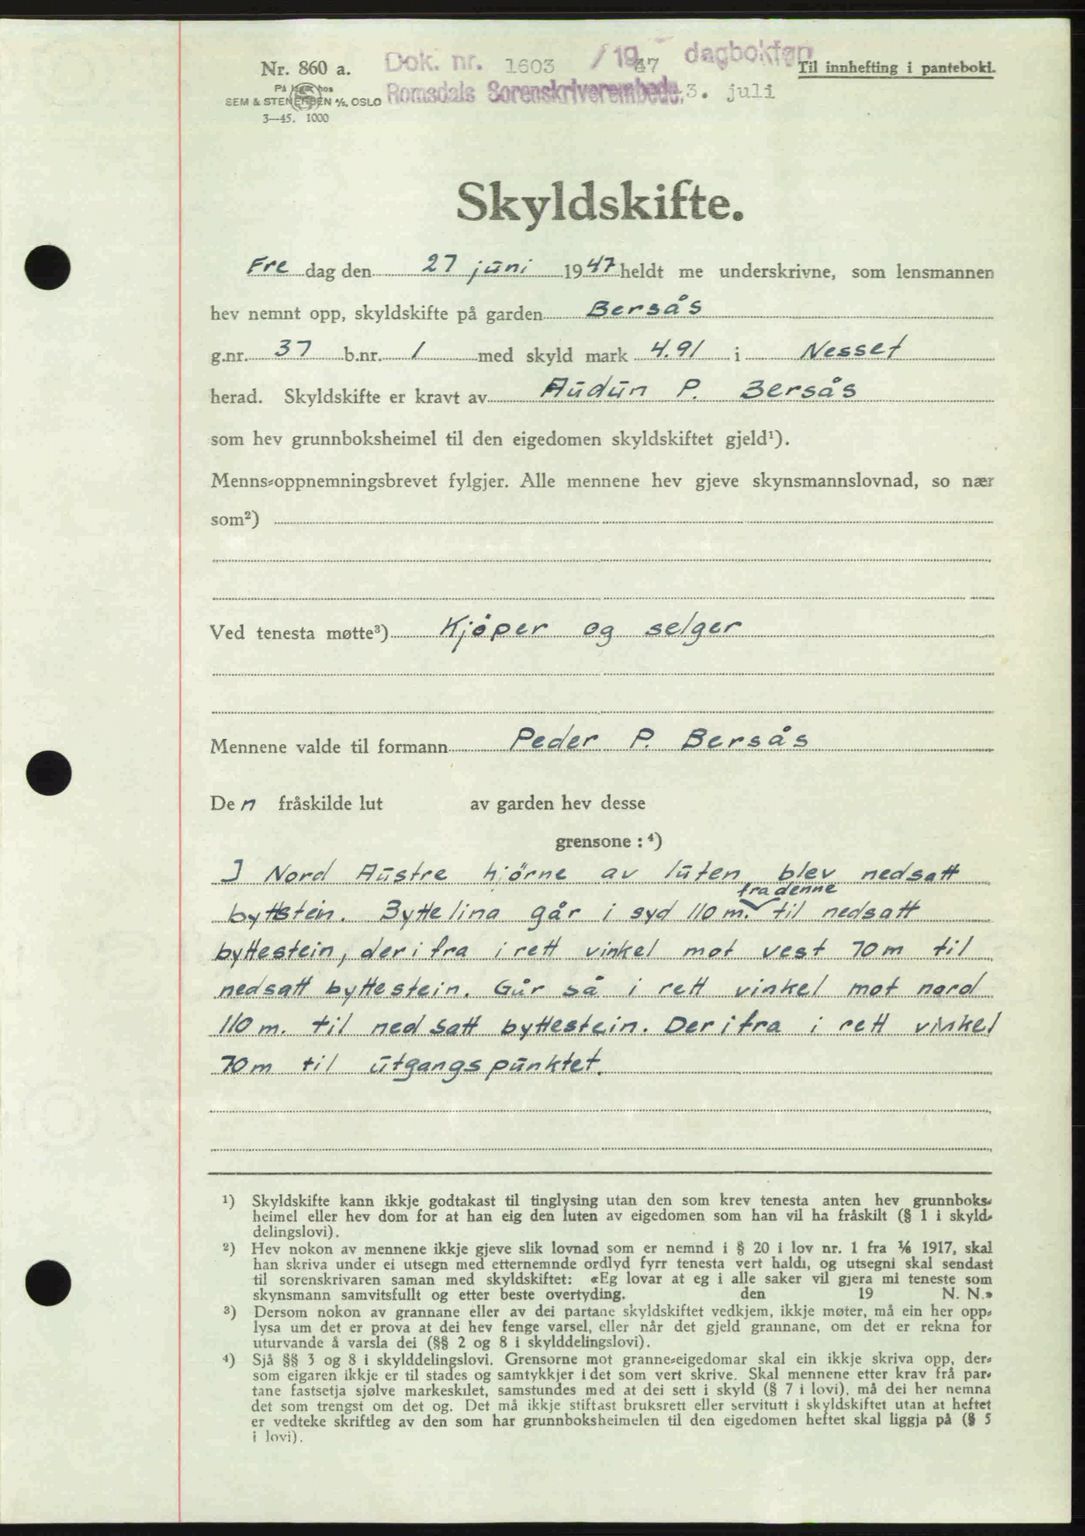 Nr. 860 a.
Dok. nr. 1603 / 1947 dagbokført
Til innhefting i pantebok.
På lager hos
SEM & STENERSEN A/S, OSLO
Romsdals Sorenskriverembede, 3. juli
3—45. 1000
Skyldskifte.
Fre dag den 27 juni 1947 heldt me underskrivne, som lensmannen
hev nemnt opp, skyldskifte på garden Bersås
g.nr. 37 b.nr. 1 med skyld mark 4.91 i Nesset
herad. Skyldskifte er kravt av Audun P. Bersås
som hev grunnboksheimel til den eigedomen skyldskiftet gjeld¹).
Menns-oppnemningsbrevet fylgjer. Alle mennene hev gjeve skynsmannslovnad, so nær
som²)
Ved tenesta møtte³) Kjöper og selger
Mennene valde til formann Peder P. Bersås
Den fråskilde lut av garden hev desse
grensone : ⁴)
I Nord Austre hjörne av luten blev nedsatt
fra denne
byttstein. Byttelina går i syd 110 m. til nedsatt
byttestein, derifra i rett vinkel mot vest 70 m til
nedsatt byttestein. Går så i rett vinkel mot nord
110 m. til nedsatt byttestein. Derifra i rett vinkel
70 m til utgangspunktet.
¹) Skyldskifte kann ikkje godtakast til tinglysing utan den som krev tenesta anten hev grunnboks-
heimel eller hev dom for at han eig den luten av eigedomen som han vil ha fråskilt (§ 1 i skyld-
delingslovi).
²) Hev nokon av mennene ikkje gjeve slik lovnad som er nemnd i § 20 i lov nr. 1 fra 1/6 1917, skal
han skriva under ei utsegn med etternemnde ordlyd fyrr tenesta vert haldi, og utsegni skal sendast
til sorenskrivaren saman med skyldskiftet: «Eg lovar at eg i alle saker vil gjera mi teneste som
skynsmann samvitsfullt og etter beste overtyding. den 19 N. N.»
³) Dersom nokon av grannane eller av dei partane skyldskiftet vedkjem, ikkje møter, må ein her opp-
lysa um det er prova at dei hev fenge varsel, eller når det gjeld grannane, om det er rekna for
uturvande å varsla dei (§§ 2 og 8 i skylddelingslovi).
⁴) Sjå §§ 3 og 8 i skylddelingslovi. Grensorne mot granne-eigedomar skal ein ikkje skriva opp, der-
som eigaren ikkje er til stades og samtykkjer i det som vert skrive. Skal mennene etter krav frå par-
tane fastsetja sjølve markeskilet, samstundes med at dei sett i skyld (§ 7 i lovi), må dei her nemna
det som trengst om det og. Det må ikkje stiftast bruksrett eller servitutt i skyldskiftet utan at heftet
er vedteke skriftleg av den som har grunnboksheimelen til den eigedomen heftet skal liggja på (§ 5
i lovi).